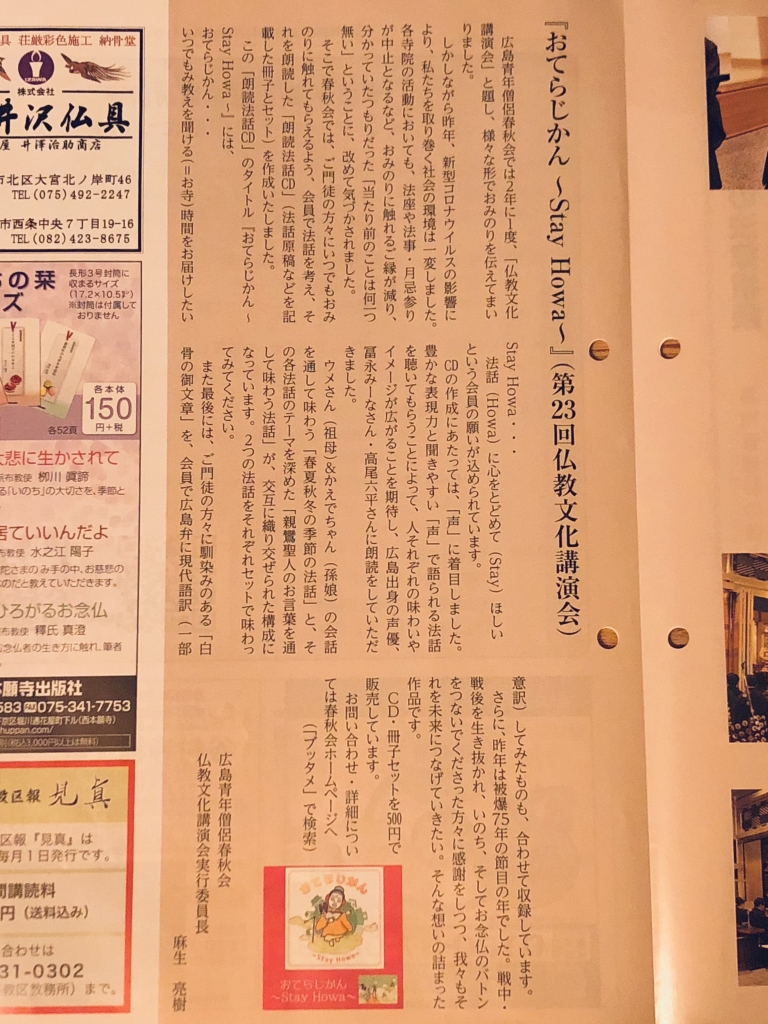 『おてらじかん ～Stay Howa～』（第23回仏教文化講演会）
広島青年僧侶春秋会では２年に１度、「仏教文化
講演会」と題し、様々な形でおみのりを伝えてまい
りました。
しかしながら昨年、新型コロナウイルスの影響に
より、私たちを取り巻く社会の環境は一変しました。
各寺院の活動においても、法座や法事・月忌参り
が中止となるなど、おみのりに触れるご縁が減り、
分かっていたつもりだった「当たり前のことは何一つ
無い」ということに、改めて気づかされました。
そこで春秋会では、ご門徒の方々にいつでもおみ
のりに触れてもらえるよう、会員で法話を考え、そ
れを朗読した「朗読法話CD」（法話原稿などを記
載した冊子とセット）を作成いたしました。
この「朗読法話CD」のタイトル『おてらじかん ～
Stay Howa ～』には、
おてらじかん・・・
いつでもみ教えを聞ける（＝お寺）時間をお届けしたい
Stay Howa・・・
法話（Howa）に心をとどめて（Stay）ほしい
という会員の願いが込められています。
CDの作成にあたっては、「声」に着目しました。
豊かな表現力と聞きやすい「声」で語られる法話
を聴いてもらうことによって、人それぞれの味わいや
イメージが広がることを期待し、広島出身の声優、
冨永みーなさん・高尾六平さんに朗読をしていただ
きました。
ウメさん（祖母）＆かえでちゃん（孫娘）の会話
を通して味わう「春夏秋冬の季節の法話」と、そ
の各法話のテーマを深めた「親鸞聖人のお言葉を通
して味わう法話」が、交互に織り交ぜられた構成に
なっています。２つの法話をそれぞれセットで味わっ
てみてください。
また最後には、ご門徒の方々に馴染みのある「白
骨の御文章」を、会員で広島弁に現代語訳（一部
意訳）してみたものも、合わせて収録しています。
さらに、昨年は被爆75年の節目の年でした。戦中・
戦後を生き抜かれ、いのち、そしてお念仏のバトン
をつないでくださった方々に感謝をしつつ、我々もそ
れを未来につなげていきたい。そんな想いの詰まった
作品です。
ＣＤ・冊子セットを500円で
販売しています。
お問い合わせ・詳細につい
ては春秋会ホームページへ
（「ブッタメ」で検索）
広島青年僧侶春秋会
仏教文化講演会実行委員長
麻生 亮樹
おてらじかん
~Stay Howa~
おてらじかん
～Stay Howa～
荘厳彩色施工 納骨堂
IZAWA
株式会社
井沢仏具
屋 井澤治助商店
市北区大宮北ノ岸町46
TEL(075)492-2247
市西条中央７丁目19-16
TEL(082)423-8675
の栞
ズ
長形３号封筒に
収まるサイズ
(17.2×10.5㌢)
※封筒は付属して
おりません
各本体
150
円+税
各52頁
大悲に生かされて
布教使 栁川 眞諦
る「いのち」の大切さを、季節と
居ていいんだよ
布教使 水之江 陽子
陀さまのみ手の中、お慈悲の
なのだと教えていただきます。
ひろがるお念仏
布教使 釋氏 真澄
念仏者の生き方に触れ、筆者
本願寺出版社
583 FAX 075-341-7753
京区堀川通花屋町下ル(西本願寺)
huppan.com/
(税込3,000円以上は無料)
教区報 見真
区報『見真』は
毎月１日発行です。
間購読料
円（送料込み）
合わせは
31-0302
教区教務所）まで。